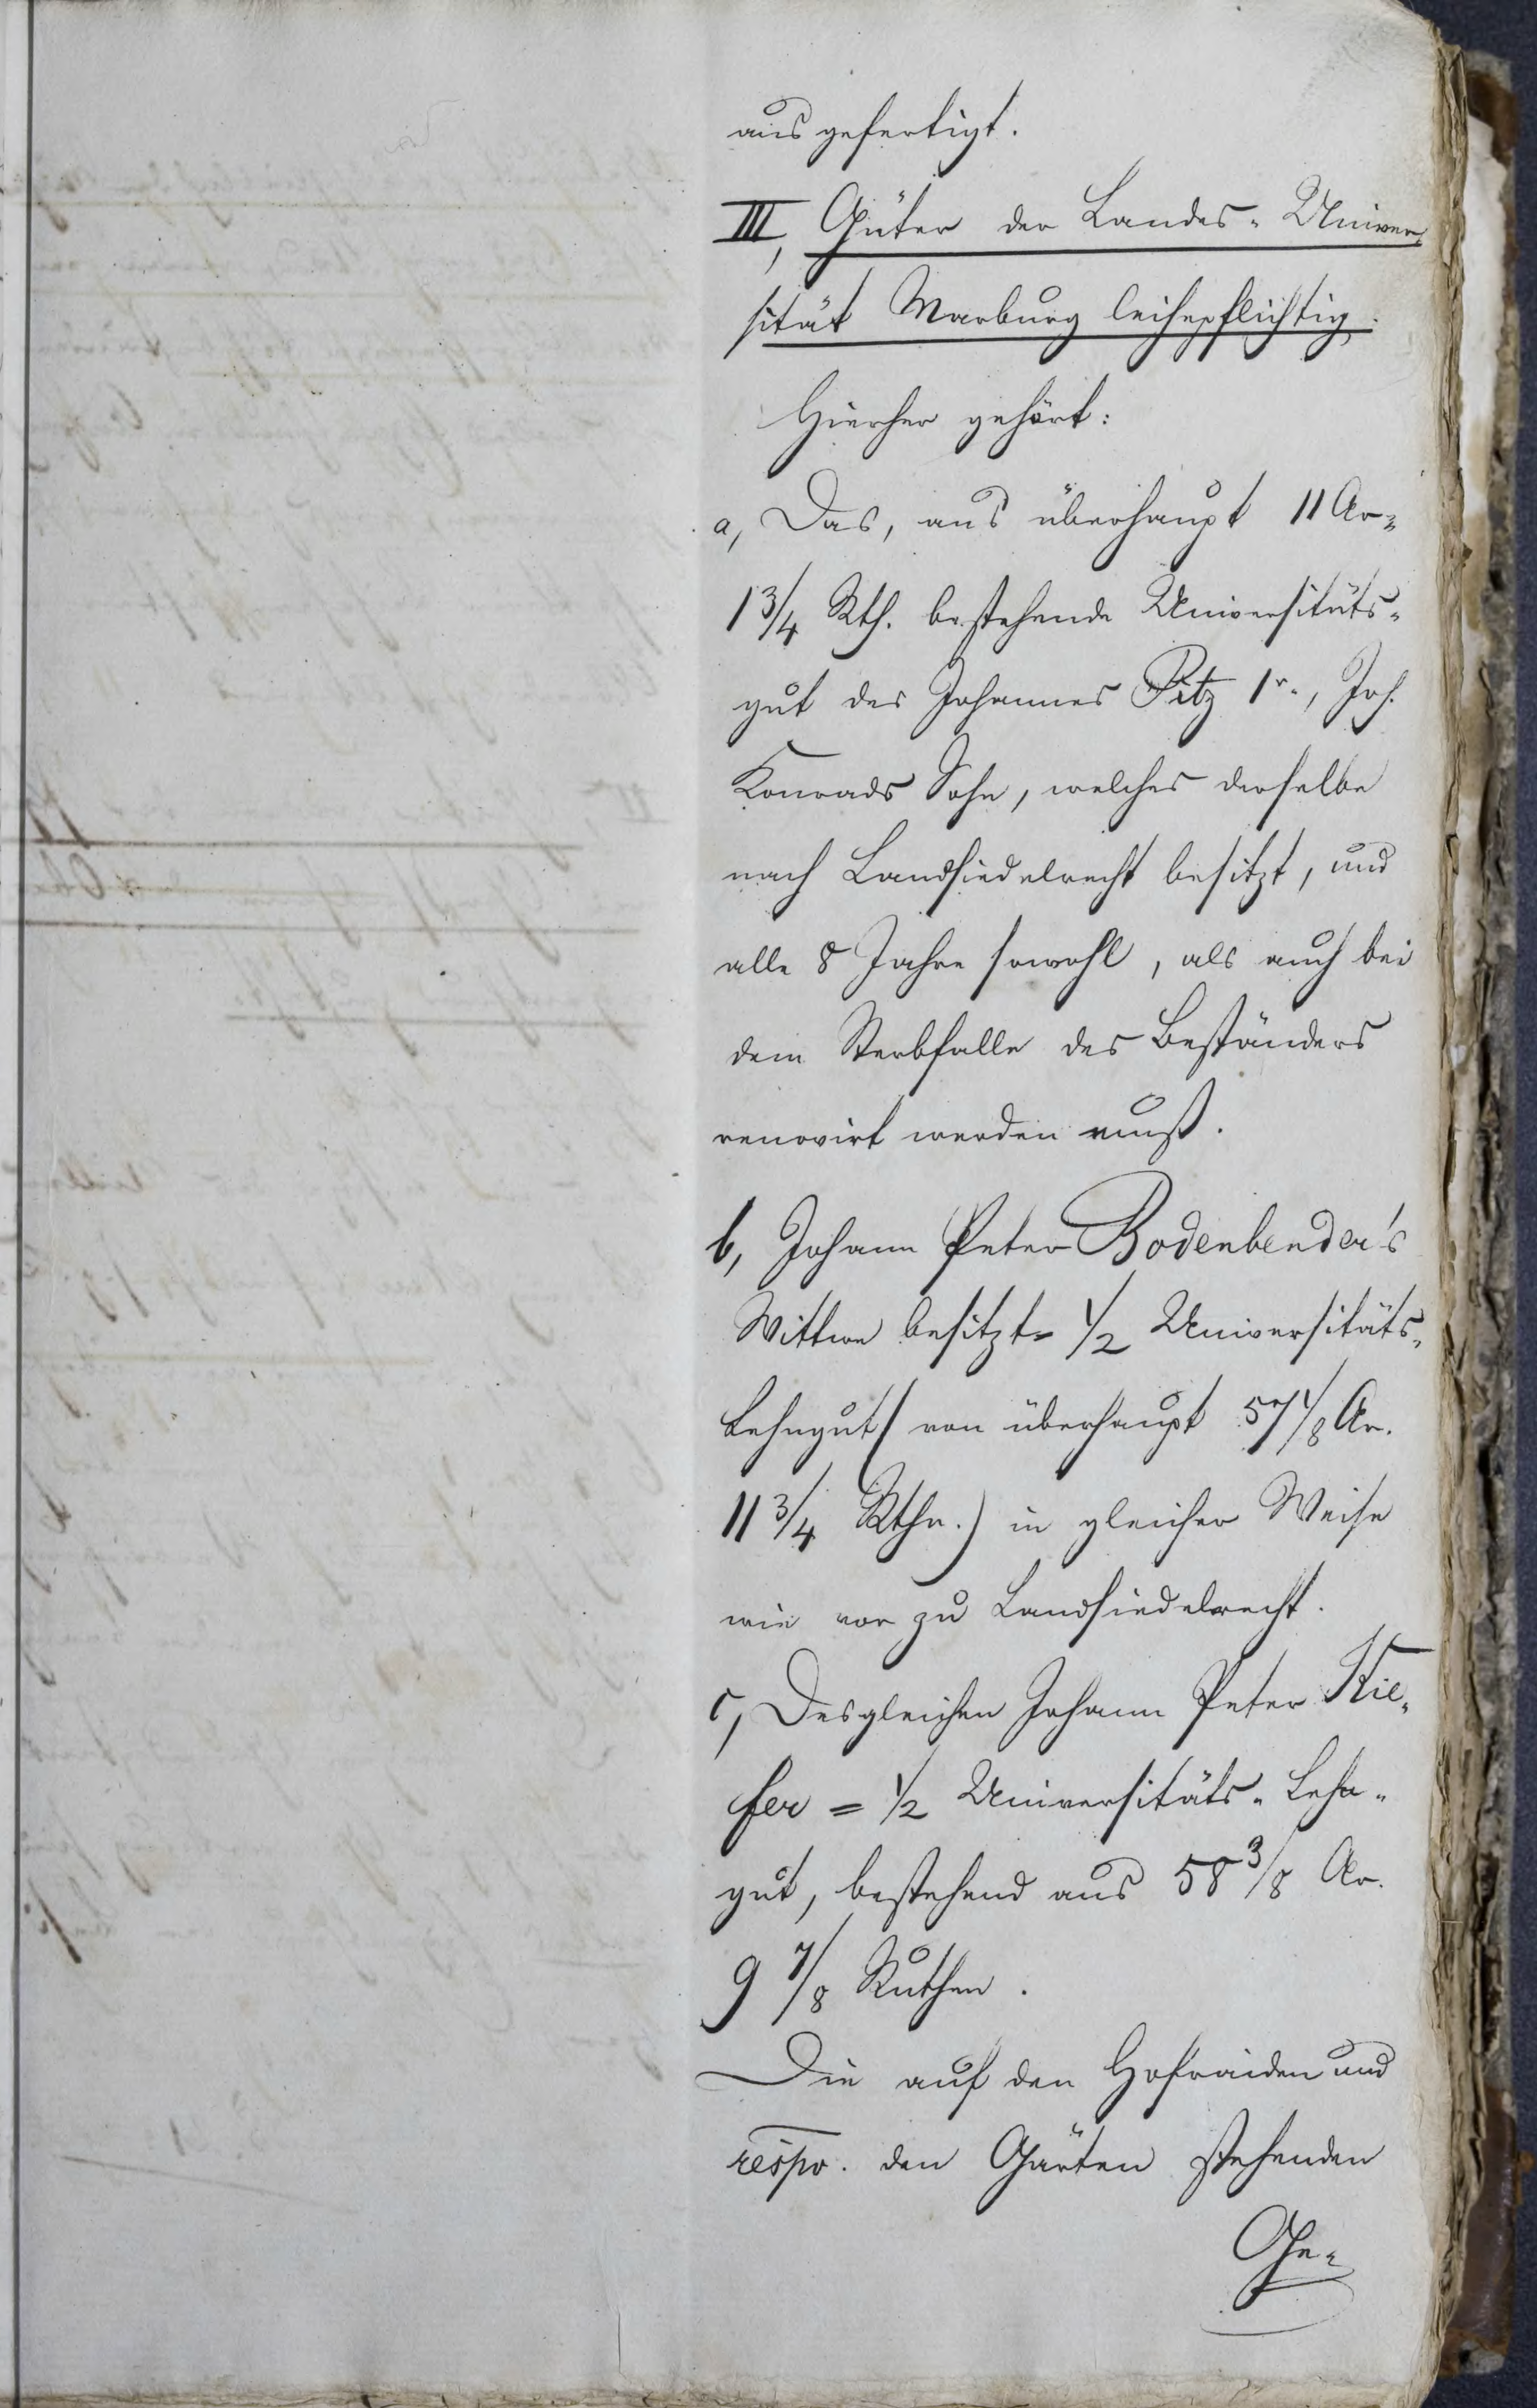 ausgefertigt.
III, Güter der Landes-Univer-
sität Marburg leihepflichtig.
Hierher gehört:
a, Das, aus überhaupt 11 Ar=
1 3/4 Rth. bestehende Universitäts-
gut des Johannes Pitz 1r., Joh.
Konrads Sohn, welches derselbe
nach Landsiedelrecht besitzt, und
alle 8 Jahre sowohl, als auch bei
dem Sterbfalle des Beständers
renovirt werden muß.
b, Johann Peter Bodenbender's
Wittwe besitzt = 1/2 Universitäts-
Lehngut (von überhaupt 57 1/8 Ar.
11 3/4 Rthn.) in gleicher Weise
wie vor zu Landsiedelrecht.
c, Desgleichen Johann Peter Kie-
fer = 1/2 Universitäts-Lehn-
gut, bestehend aus 58 3/8 Ar.
9 7/8 Ruthen.
Die auf den Hofraiden und
respv. den Gärten stehenden
Ge-